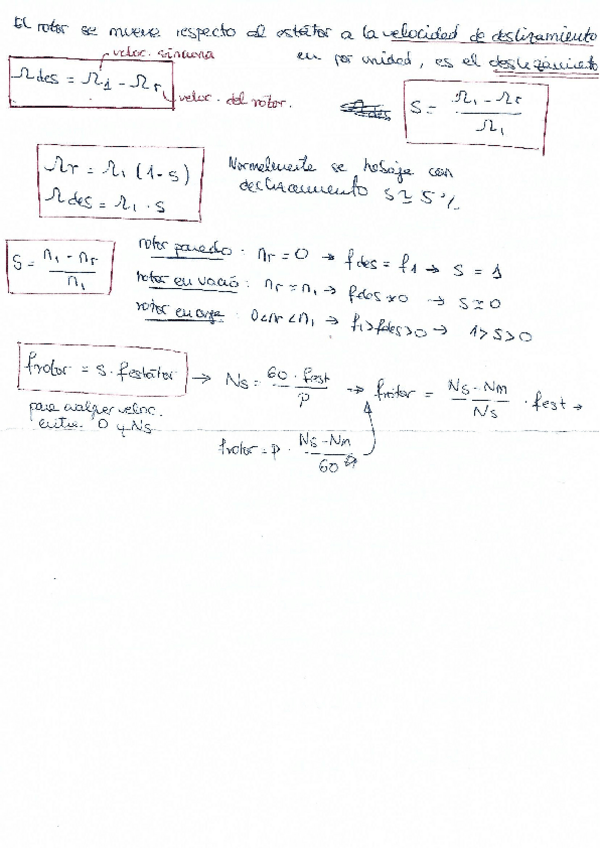 El rotor se mueve respecto al estátor a la velocidad de deslizamiento
veloc. síncrona
en por unidad, es el deslizamiento
Ωdes = Ω1 - Ωr
veloc. del rotor.
S = (Ω1 - Ωr) / Ω1
Ωr = Ω1 (1-s)
Ωdes = Ω1 · s
Normalmente se trabaja con
deslizamiento s ≃ 5%
S = (n1 - nr) / n1
rotor parado: nr = 0 → fdes = f1 → s = 1
rotor en vació: nr ≈ n1 → fdes ≈ 0 → s ≃ 0
rotor en carga: 0<nr<n1 → f1>fdes>0 → 1>s>0
frotor = s · festátor → Ns = (60 · fest) / p → frotor = (Ns - Nm) / Ns · fest →
para cualquier veloc.
entre 0 y Ns
frotor = p · (Ns - Nm) / 60